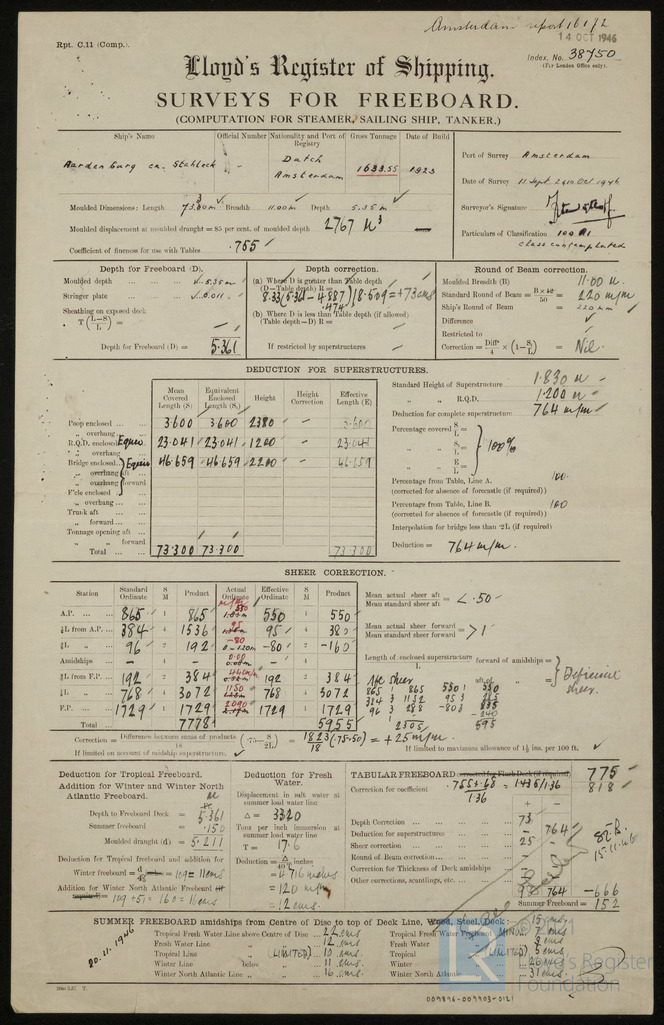 Amsterdam report 16172
14 OCT 1946
Rpt. C.11 (Comp.).
Index. No. 38750
(For London Office only).
Lloyd's Register of Shipping.
SURVEYS FOR FREEBOARD.
(COMPUTATION FOR STEAMER, SAILING SHIP, TANKER.)
Ship's Name Official Number Nationality and Port of Registry Gross Tonnage Date of Build
Aardenburg ex. Stahleck Dutch Amsterdam 1633.55 1923
Port of Survey Amsterdam
Date of Survey 11 Sept. 2nd Oct 1946
Surveyor's Signature
Particulars of Classification 100 A1
class contemplated
Moulded Dimensions: Length 73.30m Breadth 11.00 m Depth 5.35 m
Moulded displacement at moulded draught = 85 per cent. of moulded depth 2767 M3
Coefficient of fineness for use with Tables .755
Depth for Freeboard (D).
Moulded depth 5.35m
Stringer plate 0.011
Sheathing on exposed deck
T (L-S/L) =
Depth for Freeboard (D) = 5.361
Depth correction.
(a) Where D is greater than Table depth
(D-Table depth) R =
8.33 (5.361 - 4.887) 18.509 = +73 cms
.474
(b) Where D is less than Table depth (if allowed)
(Table depth-D) R =
If restricted by superstructures
Round of Beam correction.
Moulded Breadth (B) 11.00 m.
Standard Round of Beam = B×12/50 = 220 m/m
Ship's Round of Beam = 220 mm
Difference
Restricted to
Correction = Diff/4 × (1-S1/L) = Nil.
DEDUCTION FOR SUPERSTRUCTURES.
Mean Covered Length (S) Equivalent Enclosed Length (S1) Height Height Correction Effective Length (E)
Poop enclosed 3.600 3.600 2380 - 3.600
„ overhang
R.Q.D. enclosed Equiv 23.041 23.041 1200 - 23.041
„ overhang
Bridge enclosed Equiv 46.659 46.659 2200 46.659
„ overhang aft
„ overhang forward
F'cle enclosed
„ overhang
Trunk aft
„ forward
Tonnage opening aft
„ „ forward
Total 73.300 73.300 73.300
Standard Height of Superstructure 1.830 m
„ „ R.Q.D. 1.200 m
Deduction for complete superstructure 764 m/m
Percentage covered S/L =
„ „ S1/L = 100%
„ „ E/L =
Percentage from Table, Line A. 100.
(corrected for absence of forecastle (if required))
Percentage from Table, Line B. 100
(corrected for absence of forecastle (if required))
Interpolation for bridge less than ·2L (if required)
Deduction = 764 m/m.
SHEER CORRECTION.
Station Standard Ordinate S M Product Actual Ordinate Effective Ordinate S M Product
A.P. 865 1 865 550 550 1 550
⅙L from A.P. 384 4 1536 95 95 4 380
⅓L „ 96 2 192 -80 -80 2 -160
Amidships - 4 - 0.00 - 4
⅓L from F.P. 192 2 384 192 2 384
⅙L „ 768 4 3072 1150 768 4 3072
F.P. 1729 1 1729 2090 1729 1 1729
Total 7778 5955
Mean actual sheer aft / Mean standard sheer aft = < .50
Mean actual sheer forward / Mean standard sheer forward = > 1
Length of enclosed superstructure forward of amidships =
L
„ „ aft of „ =
Deficient sheer.
Aft sheer
865 1 865 550 1 550
384 3 1152 95 3 285
96 3 288 -80 3
835
-240
2305 595
Correction = Difference between sums of products / 18 (·75 - S/2L) = 1823/18 (.75-.50) = +25 m/m.
If limited on account of midship superstructure.
If limited to maximum allowance of 1½ ins. per 100 ft.
Deduction for Tropical Freeboard.
Addition for Winter and Winter North Atlantic Freeboard.
Depth to Freeboard Deck = 5.361
Summer freeboard = .150
Moulded draught (d) = 5.211
Deduction for Tropical freeboard and addition for
Winter freeboard = 109 = 11 cms
Addition for Winter North Atlantic Freeboard
= 109 + 51 = 160 = 16 cms
Deduction for Fresh Water.
Displacement in salt water at summer load water line
Δ = 3320
Tons per inch immersion at summer load water line
T = 17.6
Deduction = Δ/40T inches
= 4.716 inches
= 120 m/m
= 12 cms.
TABULAR FREEBOARD corrected for Flush Deck (if required) 775
Correction for coefficient .755+.68 / 1.36 = 1.435/1.36 818
+ -
Depth Correction 73
Deduction for superstructures - 764
Sheer correction 25 -
Round of Beam correction - -
Correction for Thickness of Deck amidships
Other corrections, scantlings, etc.
98 764 -666
Summer Freeboard = 152
15.11.46
SUMMER FREEBOARD amidships from Centre of Disc to top of Deck Line, Wood, Steel, Deck: 15 cms.
Tropical Fresh Water Line above Centre of Disc 22 cms
Fresh Water Line „ 12 cms.
Tropical Line „ (LIMITED) 10 cms
Winter Line below „ 11 cms.
Winter North Atlantic Line „ 16 cms.
Tropical Fresh Water Freeboard MINUS 7 cms
Fresh Water „ 3 cms
Tropical „ (LIMITED) 5 cms
Winter „ 26 cms.
Winter North Atlantic „ 31 cms.
20.11.1946
Lloyd's Register
Foundation
009896-009903-0121